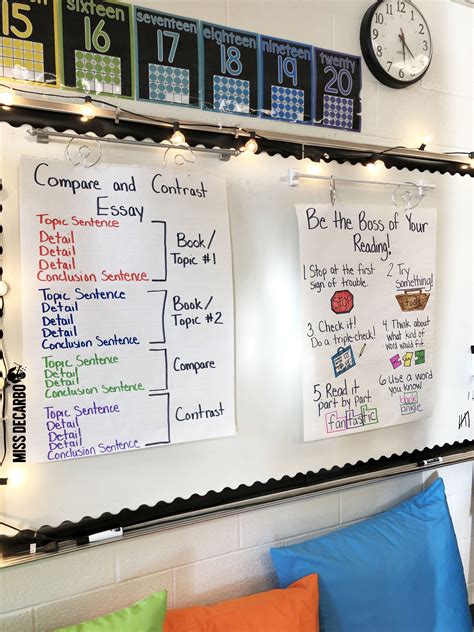 15
sixteen
16
seventeen
17
eighteen
18
nineteen
19
twenty
20
Compare and Contrast
Essay
Topic Sentence
Detail
Detail
Detail
Conclusion Sentence
Book/
Topic #1
Topic Sentence
Detail
Detail
Detail
Conclusion Sentence
Book/
Topic #2
Topic Sentence
Detail
Conclusion Sentence
Compare
Topic Sentence
Detail
Detail
Conclusion Sentence
Contrast
Be the Boss of Your
Reading!
1. Stop at the first
sign of trouble.
STOP
2. Try
something!
3. Check it!
Do a triple-check!
4. Think about
what kind of
word would fit.
5. Read it
part by part.
fantastic
6. Use a word
you know!
ankle
MISS DECARBO